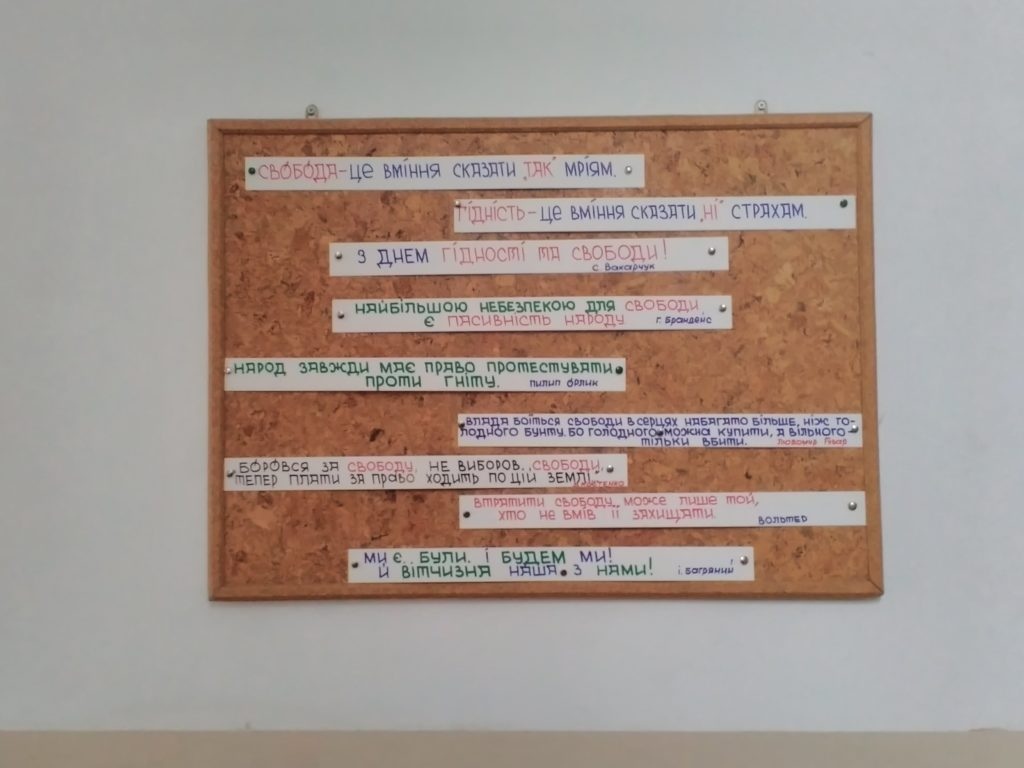 СВОБОДА - ЦЕ ВМІННЯ СКАЗАТИ „ТАК" МРІЯМ.
ГІДНІСТЬ - ЦЕ ВМІННЯ СКАЗАТИ „НІ" СТРАХАМ.
З ДНЕМ ГІДНОСТІ ТА СВОБОДИ!
С. Вакарчук
НАЙБІЛЬШОЮ НЕБЕЗПЕКОЮ ДЛЯ СВОБОДИ
Є ПАСИВНІСТЬ НАРОДУ Г. Брандейс
НАРОД ЗАВЖДИ МАЄ ПРАВО ПРОТЕСТУВАТИ
ПРОТИ ГНІТУ. ПИЛИП ОРЛИК
ВЛАДА БОЇТЬСЯ СВОБОДИ В СЕРЦЯХ НАБАГАТО БІЛЬШЕ, НІЖ ГО-
ЛОДНОГО БУНТУ. БО ГОЛОДНОГО МОЖНА КУПИТИ, А ВІЛЬНОГО -
ТІЛЬКИ ВБИТИ. Любомир Гузар
„БОРОВСЯ ЗА СВОБОДУ, НЕ ВИБОРОВ „СВОБОДИ,
ТЕПЕР ПЛАТИ ЗА ПРАВО ХОДИТЬ ПО ЦІЙ ЗЕМЛІ"
ВТРАТИТИ СВОБОДУ МОЖЕ ЛИШЕ ТОЙ,
ХТО НЕ ВМІВ ЇЇ ЗАХИЩАТИ. ВОЛЬТЕР
МИ Є.. БУЛИ. І БУДЕМ МИ!
Й ВІТЧИЗНА НАША З НАМИ! І. БАГРЯНИЙ